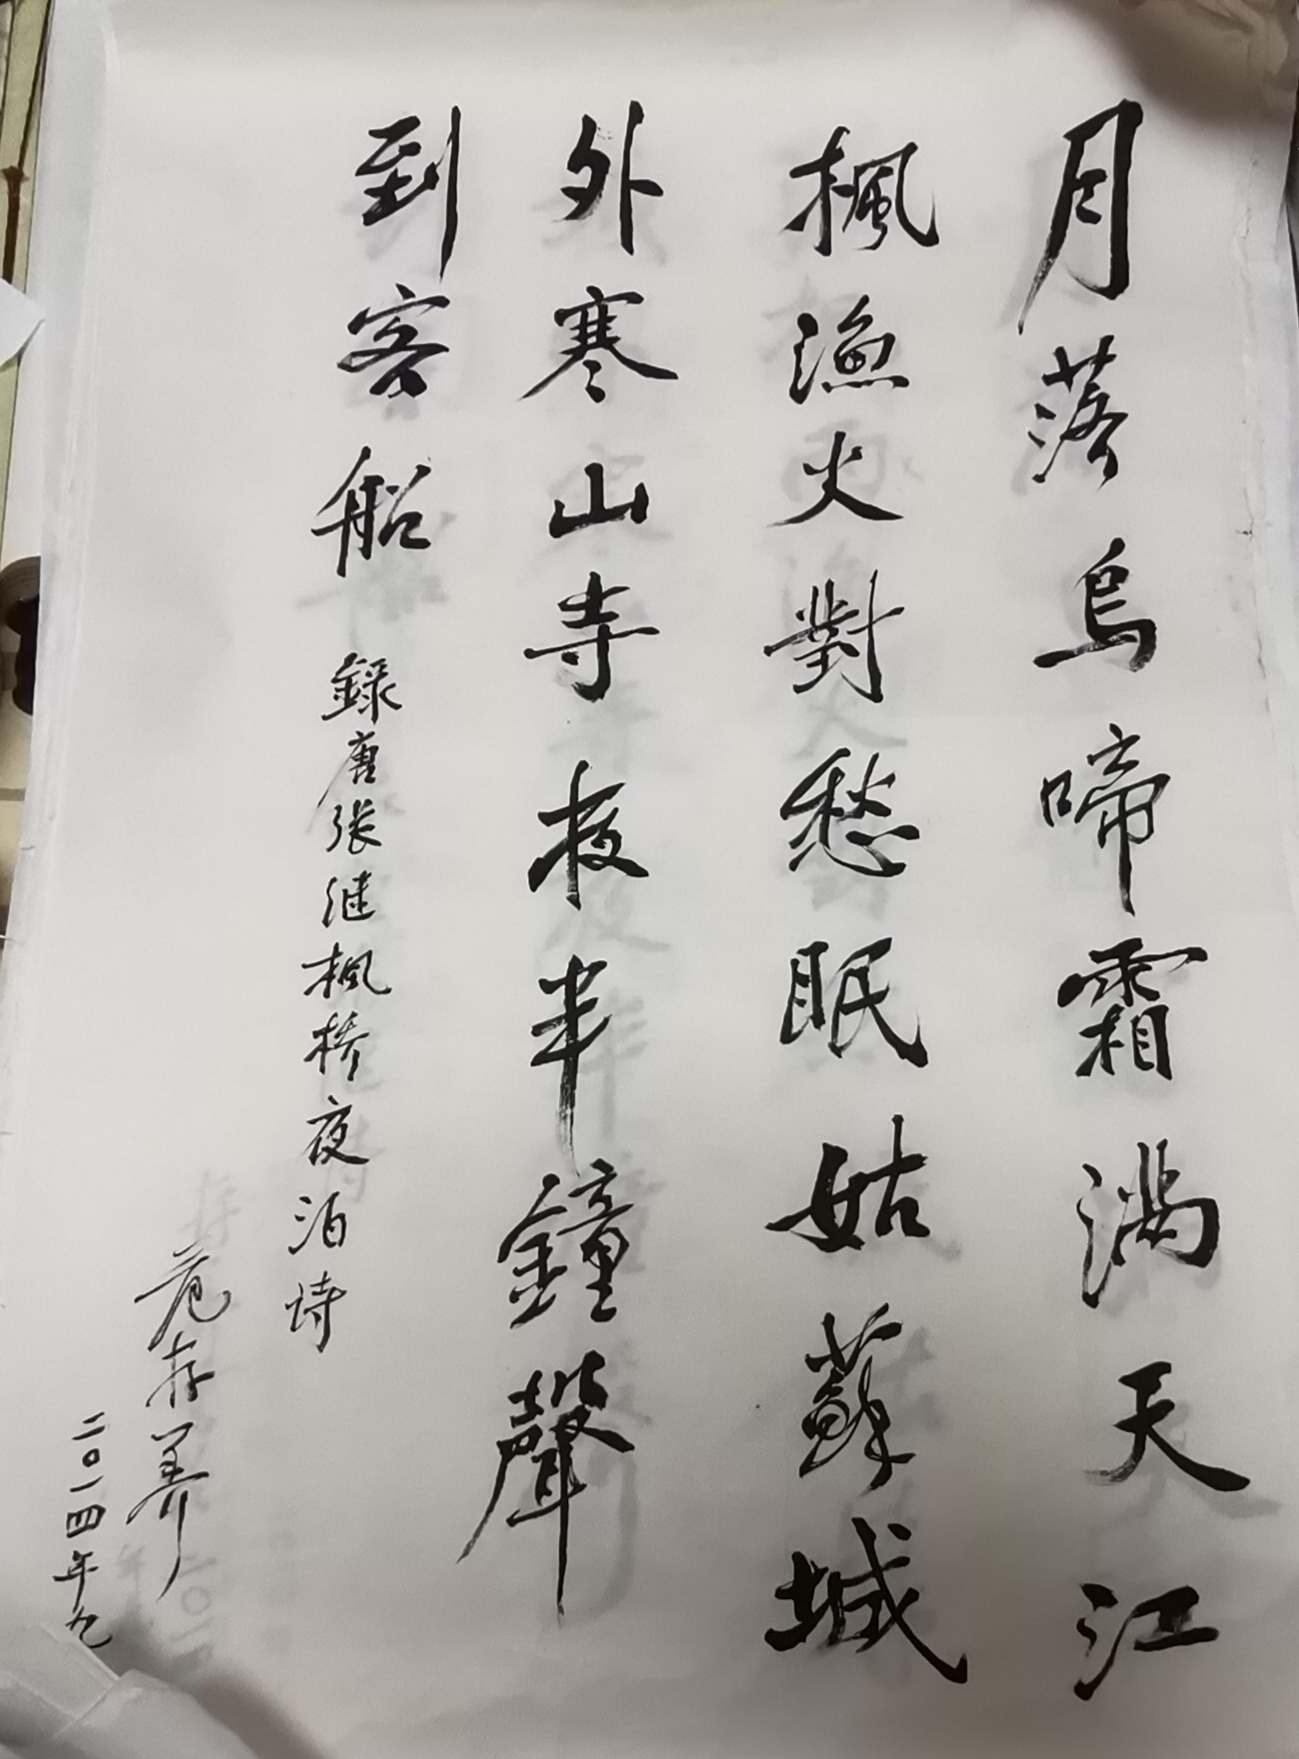 月落烏啼霜满天江
楓漁火對愁眠姑蘇城
外寒山寺夜半鐘聲
到客船
録唐张继楓桥夜泊诗
危存养
二〇一四年九